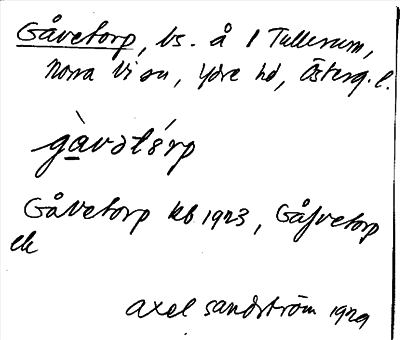 Gåvetorp, bs. å 1 Tullerum,
Norra Vi sn, Ydre hd, Österg. l.
gàvətórp
Gåvetorp kb 1923, Gåfvetorp
ek
Axel Sandström 1929